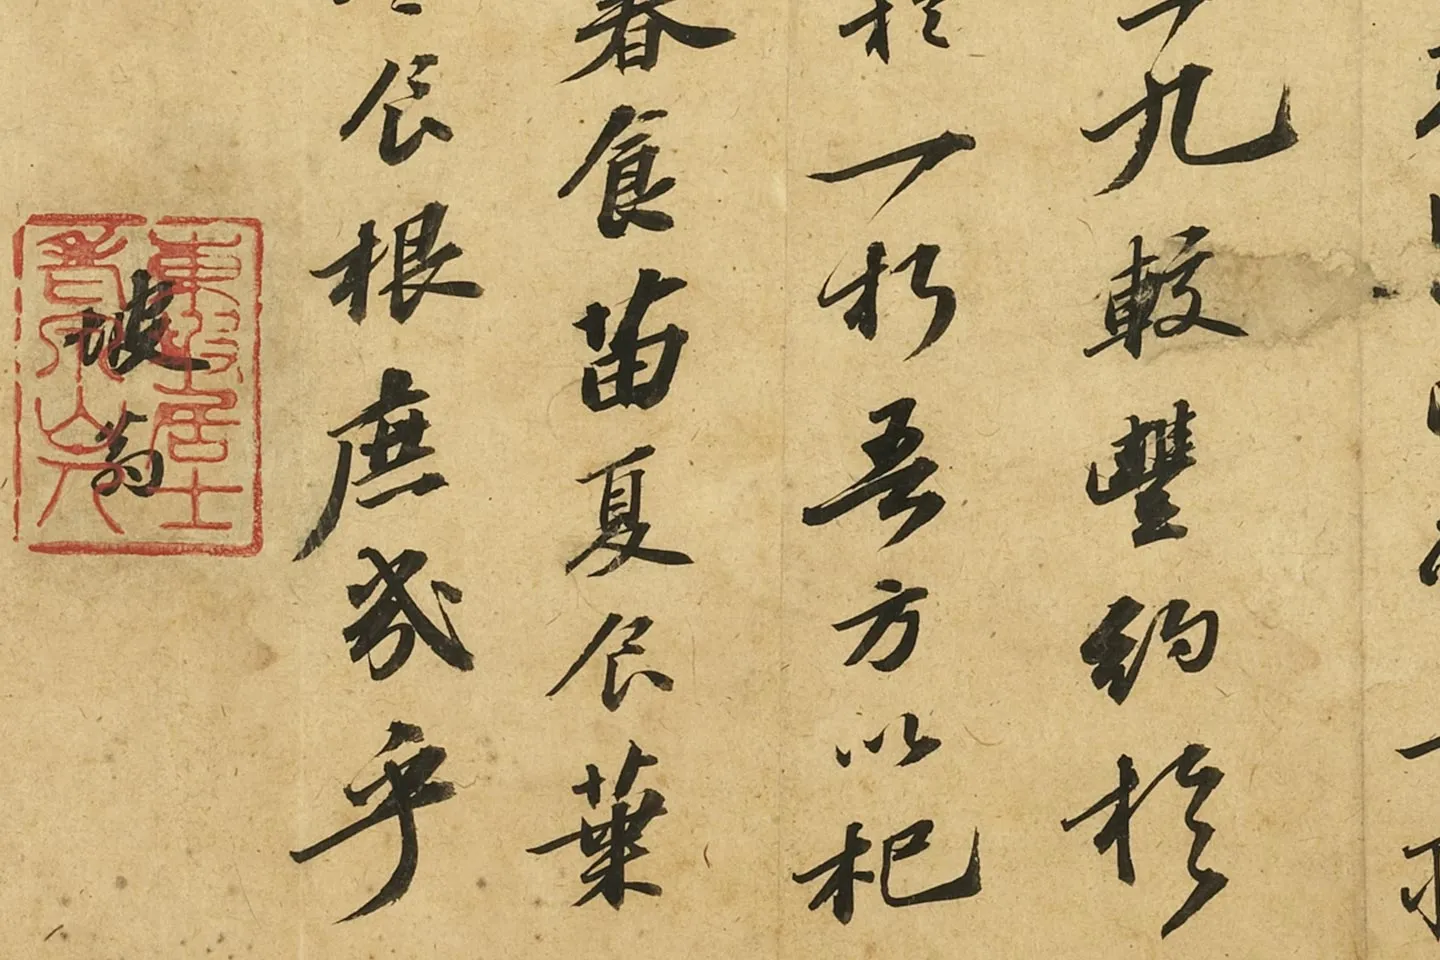 九較豐約於
於一朽吾方以杞
春食苗夏食葉
食根庶幾乎
坡翁
東坡居士
老泉山人